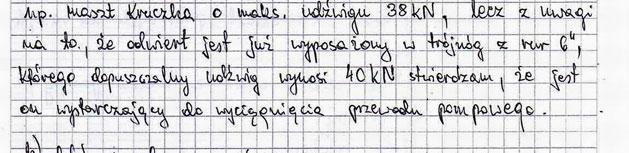 np. maszt Kruczka o maks. udźwigu 38 kN, lecz z uwagi
na to, że odwiert jest już wyposażony w trójnóg z rur 6",
którego dopuszczalny udźwig wynosi 40 kN stwierdzam, że jest
on wystarczający do wyciągnięcia przewodu pompowego.